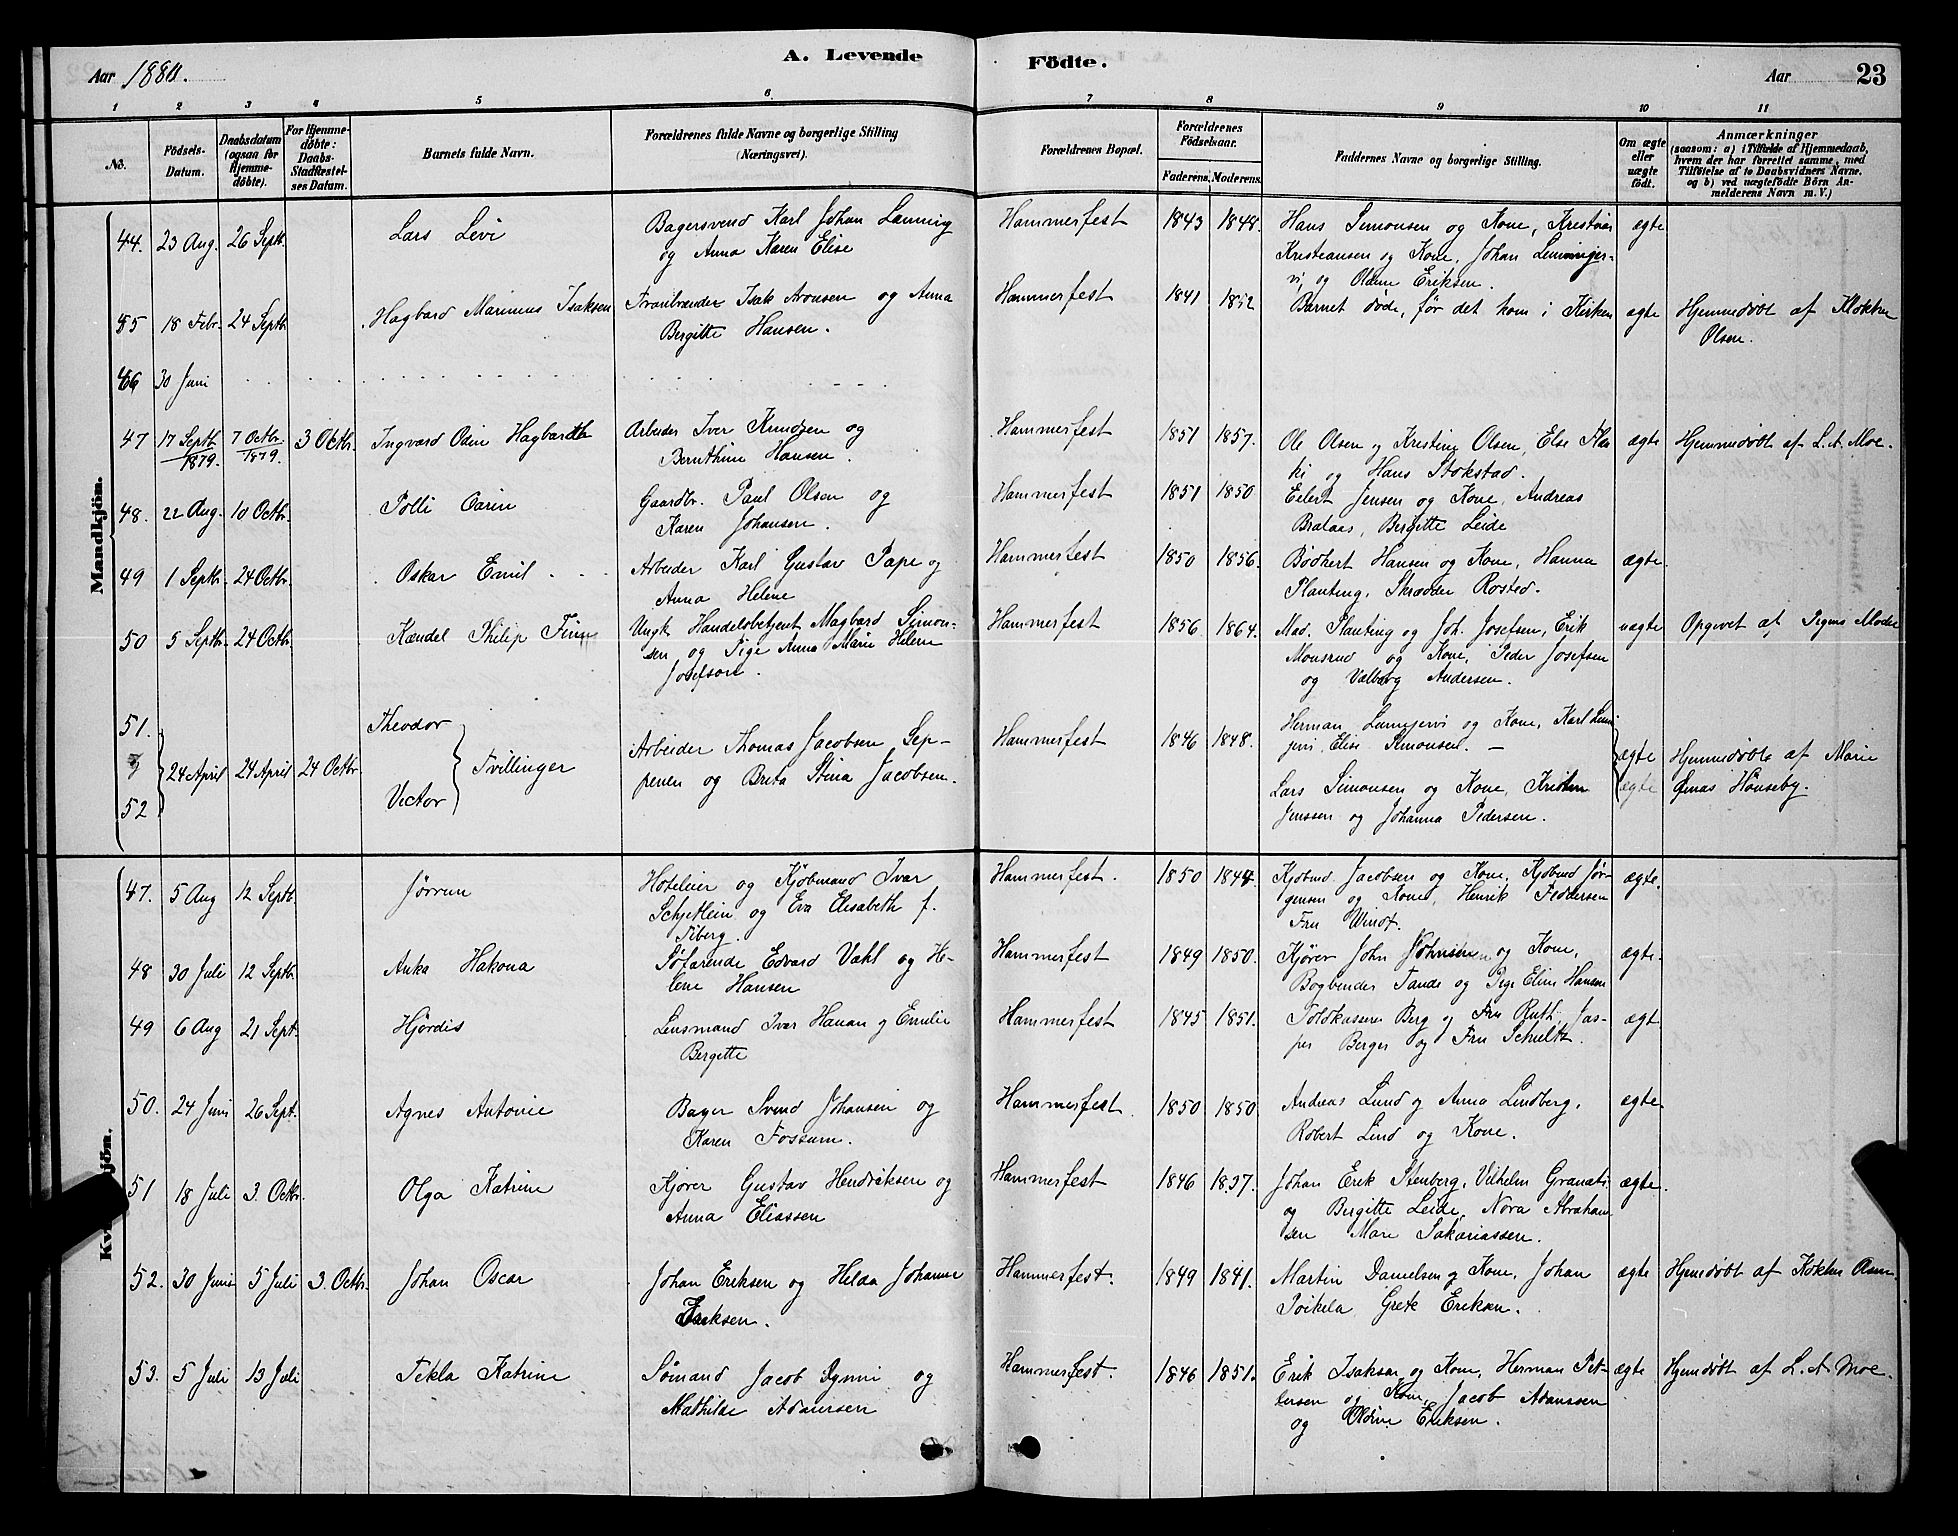 A. Levende
Födte.
Aar 1880.
Aar
23
1 2 3 4 5 6 7 8 9 10 11
No.
Födsels-
Datum.
Daabsdatum
(ogsaa for
Hjemme-
döbte).
For Hjemme-
döbte:
Daabs-
Stadfæstel-
ses Datum.
Barnets fulde Navn.
Forældrenes fulde Navne og borgerlige Stilling
(Næringsvei).
Forældrenes Bopæl.
Forældrenes
Födselsaar.
Faderens. Moderens.
Faddernes Navne og borgerlige Stilling.
Om ægte
eller
uægte
födt.
Anmærkninger
(saasom: a) i Tilfælde af Hjemmedaab,
hvem der har forrettet samme, med
Tilföielse af to Daabsvidners Navne.
og b) ved uægtefödte Börn An-
melderens Navn m. V.)
Mandkjön.
44. 23 Aug. 26 Septb. Lars Levi
Bagersvend Karl Johan Lanning
og Anna Karen Elise
Hammerfest 1843 1848.
Hans Simonsen og Kone, Kristian
Kristiansen og Kone, Johan
og Oldine Eriksen.
ægte
45 18 Febr. 24 Septb. Hagbard Marinus Isaksen
Tranbrænder Isak Aronsen og Anna
Bergitte Hansen.
Hammerfest 1841 1852
Barnet døde, før det kom i Kirken
ægte
Hjemmedøbt af Klokker
Olsen.
46 30 Juni
47 17 Septb. 1879. 7 Octbr. 1879. 3 Octbr. Ingvard Odin Hagbarth
Arbeider Iver Knudsen og
Bernthine Hansen.
Hammerfest 1851 1857.
Ole Olsen og Kristine Olsen, Else
og Hans Stokstad.
ægte
Hjemmedøbt af L. A. Moe.
48. 22 Aug. 10 Octbr. Polli Carin
Gaardbr. Paul Olsen og
Karen Johansen.
Hammerfest 1851 1850
Eilert Jensen og Kone, Andreas
Brataas, Bergitte Leide
49 1 Septbr. 24 Octbr. Oskar Emil
Arbeider Karl Gustav Pape og
Anna Helene
Hammerfest 1850 1856.
Bødkert Hansen og Kone, Hanna
Planting, Skrædder Rosted.
ægte.
50 5 Septbr. 24 Octbr. Kændel Philip Finn
Ungk. Handelsbetjent Magbard Simon-
sen og Pige Anna Marie Helene
Josefson.
Hammerfest 1856 1864.
Mad. Planting og Joh. Josefsen, Erik
Monsrud og Kone, Peder Josefsen
og Valborg Andersen.
uægte
Opgivet af Pigens Moder
51. Theodor
og 24 April 24 April 24 Octbr. Tvillinger
52 Victor
Arbeider Thomas Jacobsen Sep-
penen og Brita Stina Jacobsen.
Hammerfest 1846 1848.
Herman og Kone, Karl
Elise Simonsen. —
Lars Simonsen og Kone, Kristian
Jenssen og Johanna Pedersen.
ægte
ægte
Hjemmedøbt af Marie
Hönseby.
47. 5 Aug 12 Septb. Jørrun
Hoteleier og Kjøbmand Ivar
Schjetlein og Eva Elisabeth f.
Fiberg.
Hammerfest. 1850 1844
Kjøbmd Jacobsen og Kone, Kjøbmd Jør-
gensen og Kone, Henrik Feddersen
Fru Windt.
ægte.
48 30 Juli 12 Septb. Anka Hakona
Søfarende Edvard Vahl og He-
lene Hansen
Hammerfest 1849 1850.
Kjører John Johnsen og Kone,
Bogbinder Tande og Pige Eline Hansen
ægte.
49 6 Aug 21 Sept. Hjördis
Lensmand Ivar Hanan og Emilie
Bergitte
Hammerfest 1845 1851.
Toldkasserer Berg og Fru Ruth, Jas-
per Berger og Fru Schultz.
ægt
50. 24 Juni 26 Sept. Agnes Antonie
Bager Svend Johansen og
Karen Fossum.
Hammerfest. 1850 1850.
Andreas Lund og Anna Lindberg,
Robert Lind og Kone.
ægte.
51 18 Juli 3. Octbr. Olga Katrine
Kjører Gustav Hendriksen og
Anna Eliassen
Hammerfest 1846 1837.
Johan Erik Stenberg, Vilhelm Granati
og Bergitte Leide, Nora Abraham
sen Mari Sakariassen.
ægte.
52. 30 Juni 5 Juli 3. Octbr. Johan Oscar
Johan Eriksen og Helda Johanne
Eriksen.
Hammerfest. 1849 1841.
Martin Danielsen og Kone, Johan
Poikela Grete Eriksen.
ægte
Hjemdøbt af
53. 5 Juli 13 Juli Tekla Katrine
Sømand Jacob Rynni og
Mathilde Adamsen
Hammerfest. 1846 1851.
Erik Isaksen og Kone, Herman Pet-
tersen og Kone, Jacob Adamssen
og Oldine Eriksen.
ægte
Hjemdøbt af L. A Moe.